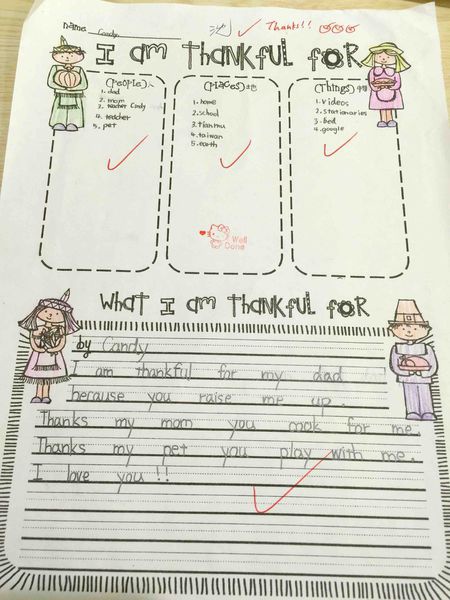 name Candy Thanks!!
I AM THANKFUL FOR
(People)人
1. dad
2. mom
3. teacher Cindy
4. teacher
5. pet
(Places)地
1. home
2. school
3. tianmu
4. taiwan
5. earth
Well
Done
(Things)物
1. videos
2. stationaries
3. bed
4. google
WHAT I AM THANKFUL FOR
by Candy
I am thankful for my dad
because you raise me up.
Thanks my mom you cook for me.
Thanks my pet you play with me.
I love you !!